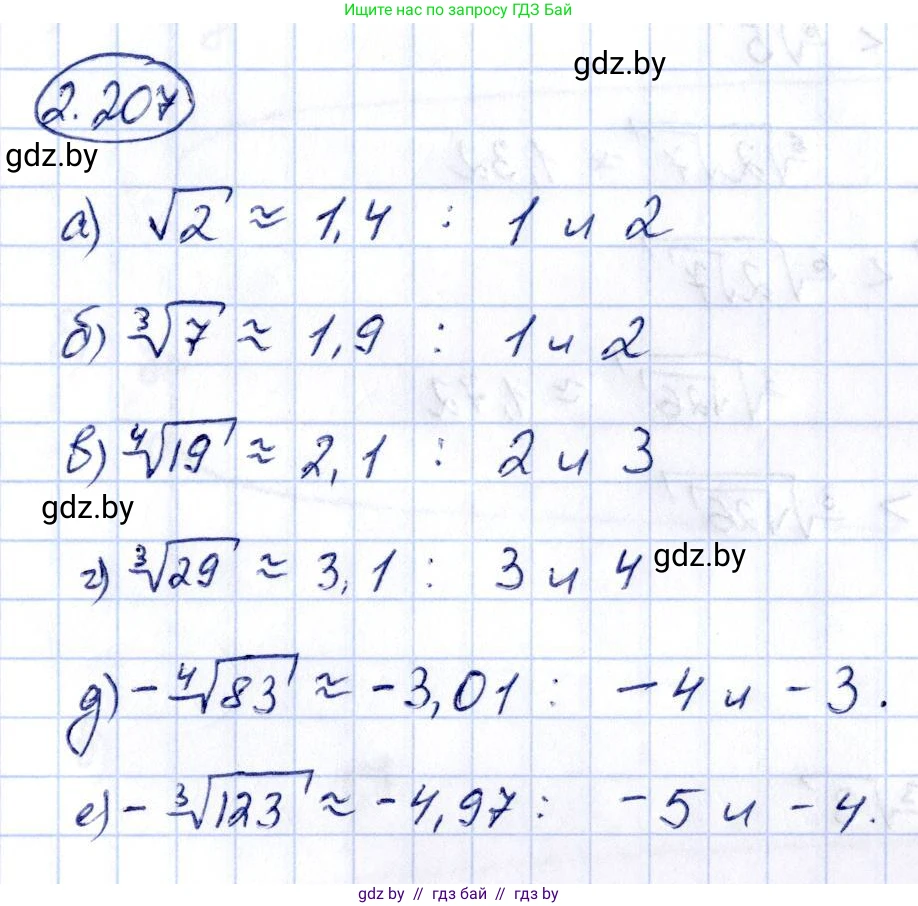 Ищите нас по запросу ГДЗ Бай
gdz.by
2.207
gdz.by
а) √2 ≈ 1,4 : 1 и 2
б) ∛7 ≈ 1,9 : 1 и 2
в) ∜19 ≈ 2,1 : 2 и 3
gdz.by
г) ∛29 ≈ 3,1 : 3 и 4
gdz.by
д) -∜83 ≈ -3,01 : -4 и -3.
е) -∛123 ≈ -4,97 : -5 и -4.
gdz.by // гдз бай // гдз by